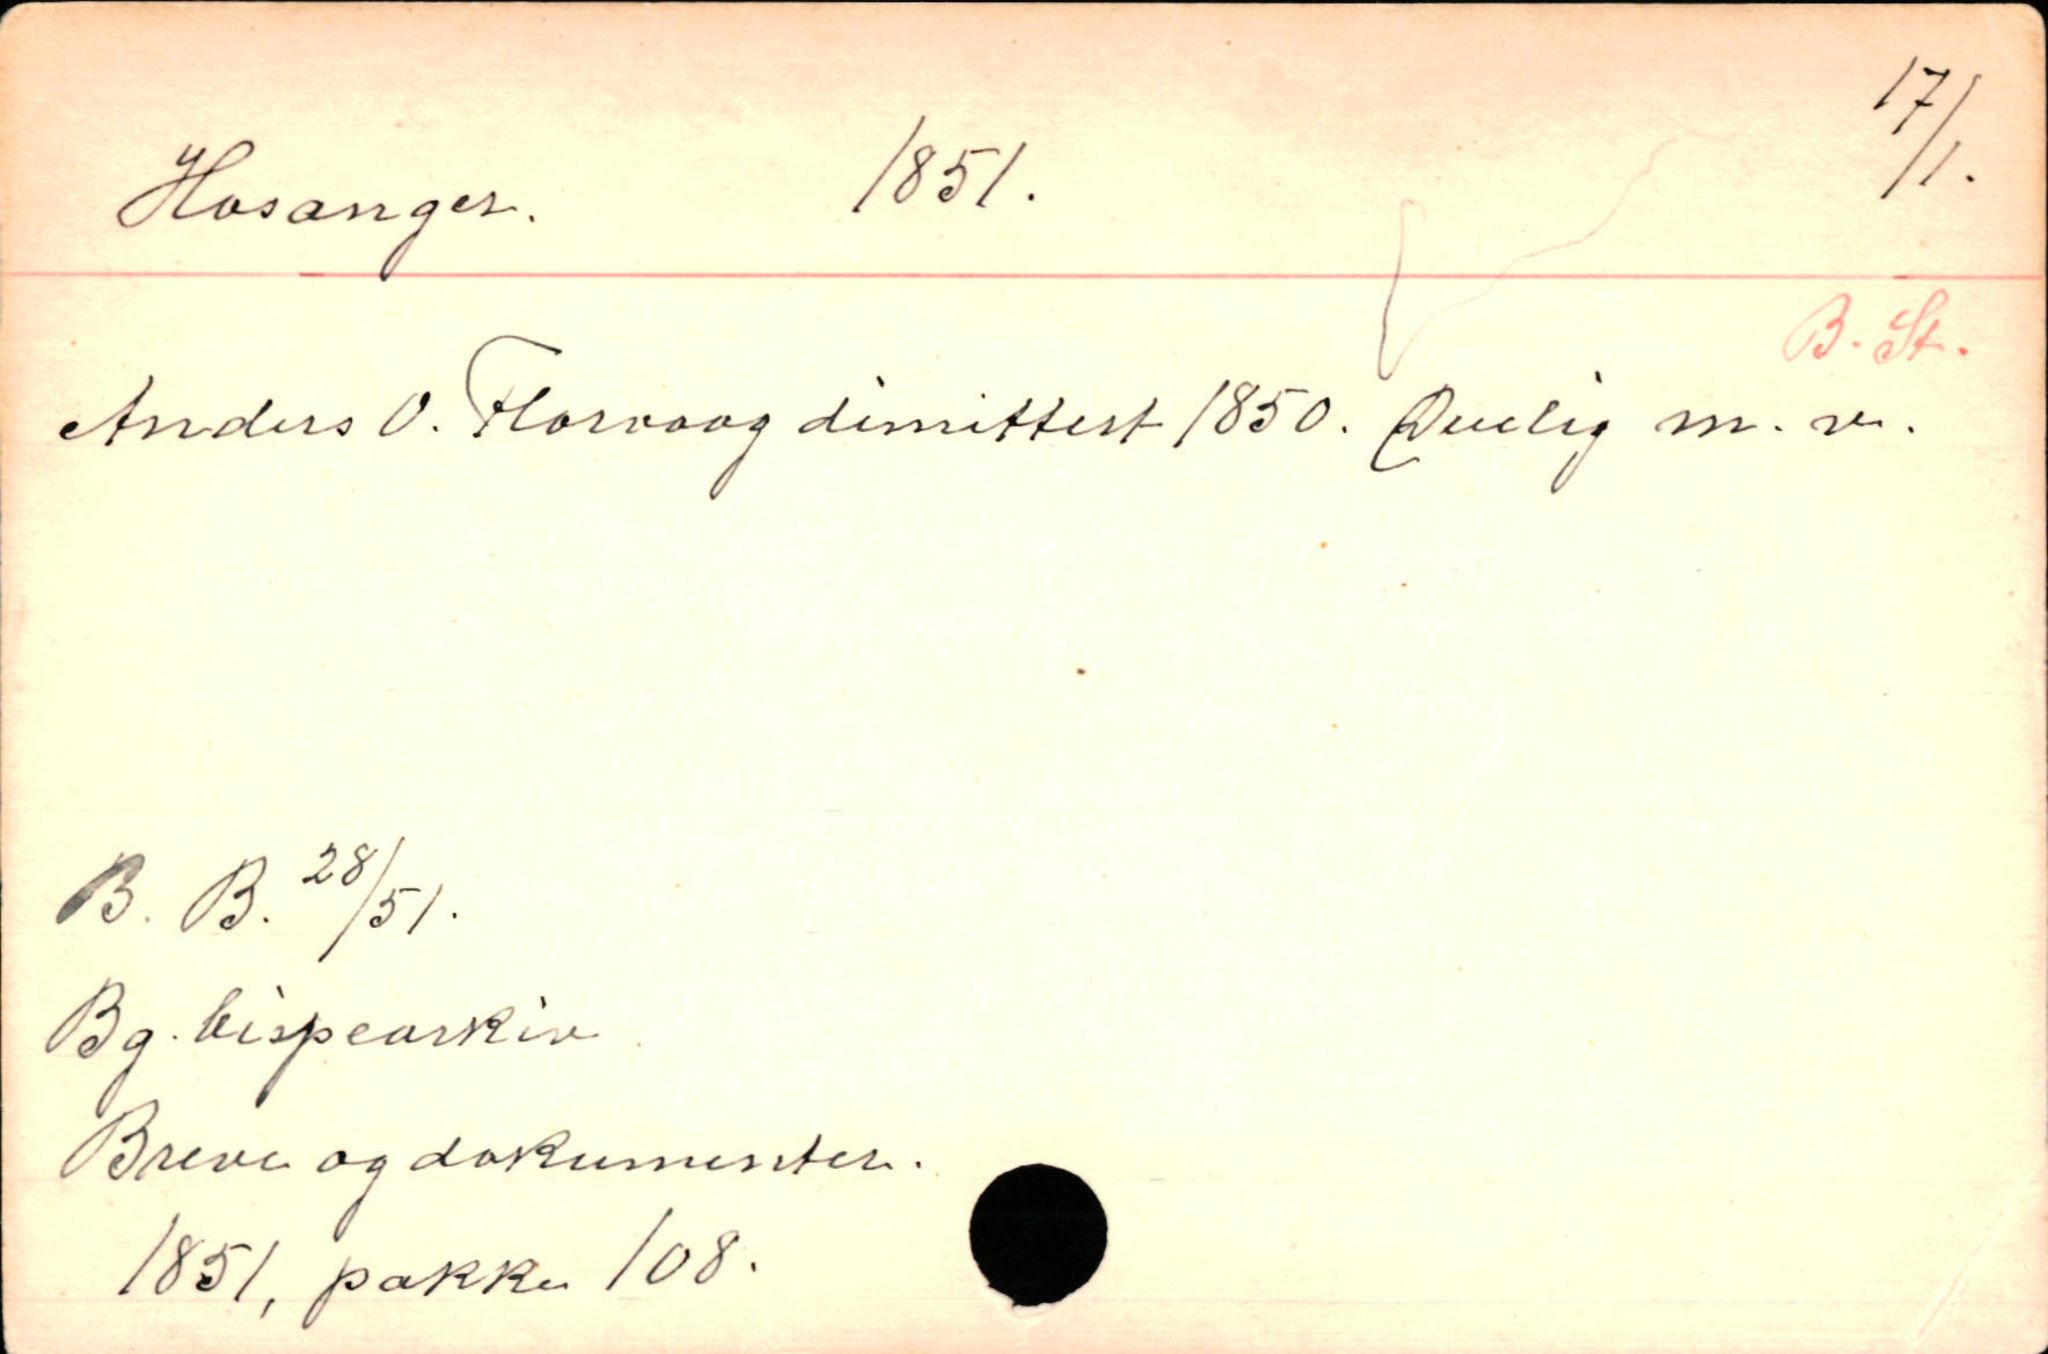 Hosanger. 1851. 17/1.
B. St.
Anders O. Florvaag dimittert 1850. Duelig m. v.
B. B. 28/51.
Bg. bispearkiv
Breve og dokumenter.
1851, pakke 108.